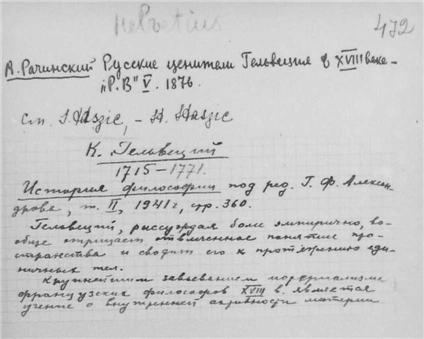 Helvetius
472
А. Рачинский Русские ценители Гельвеция в XVIII веке –
„Р. В" V. 1876.
См. S. Staszic, – St. Staszic
К. Гельвеций
1715–1771.
История философии под ред. Г. Ф. Алексан-
дрова, т. II, 1941 г, стр. 360.
Гельвеций, рассуждая более эмпирично, во-
обще отрицает отвлеченное понятие про-
странства и сводит его к протяжению еди-
ничных тел.
Крупнейшим завоеванием материализма
французских философов XVIII в. является
учение о внутренней активности материи